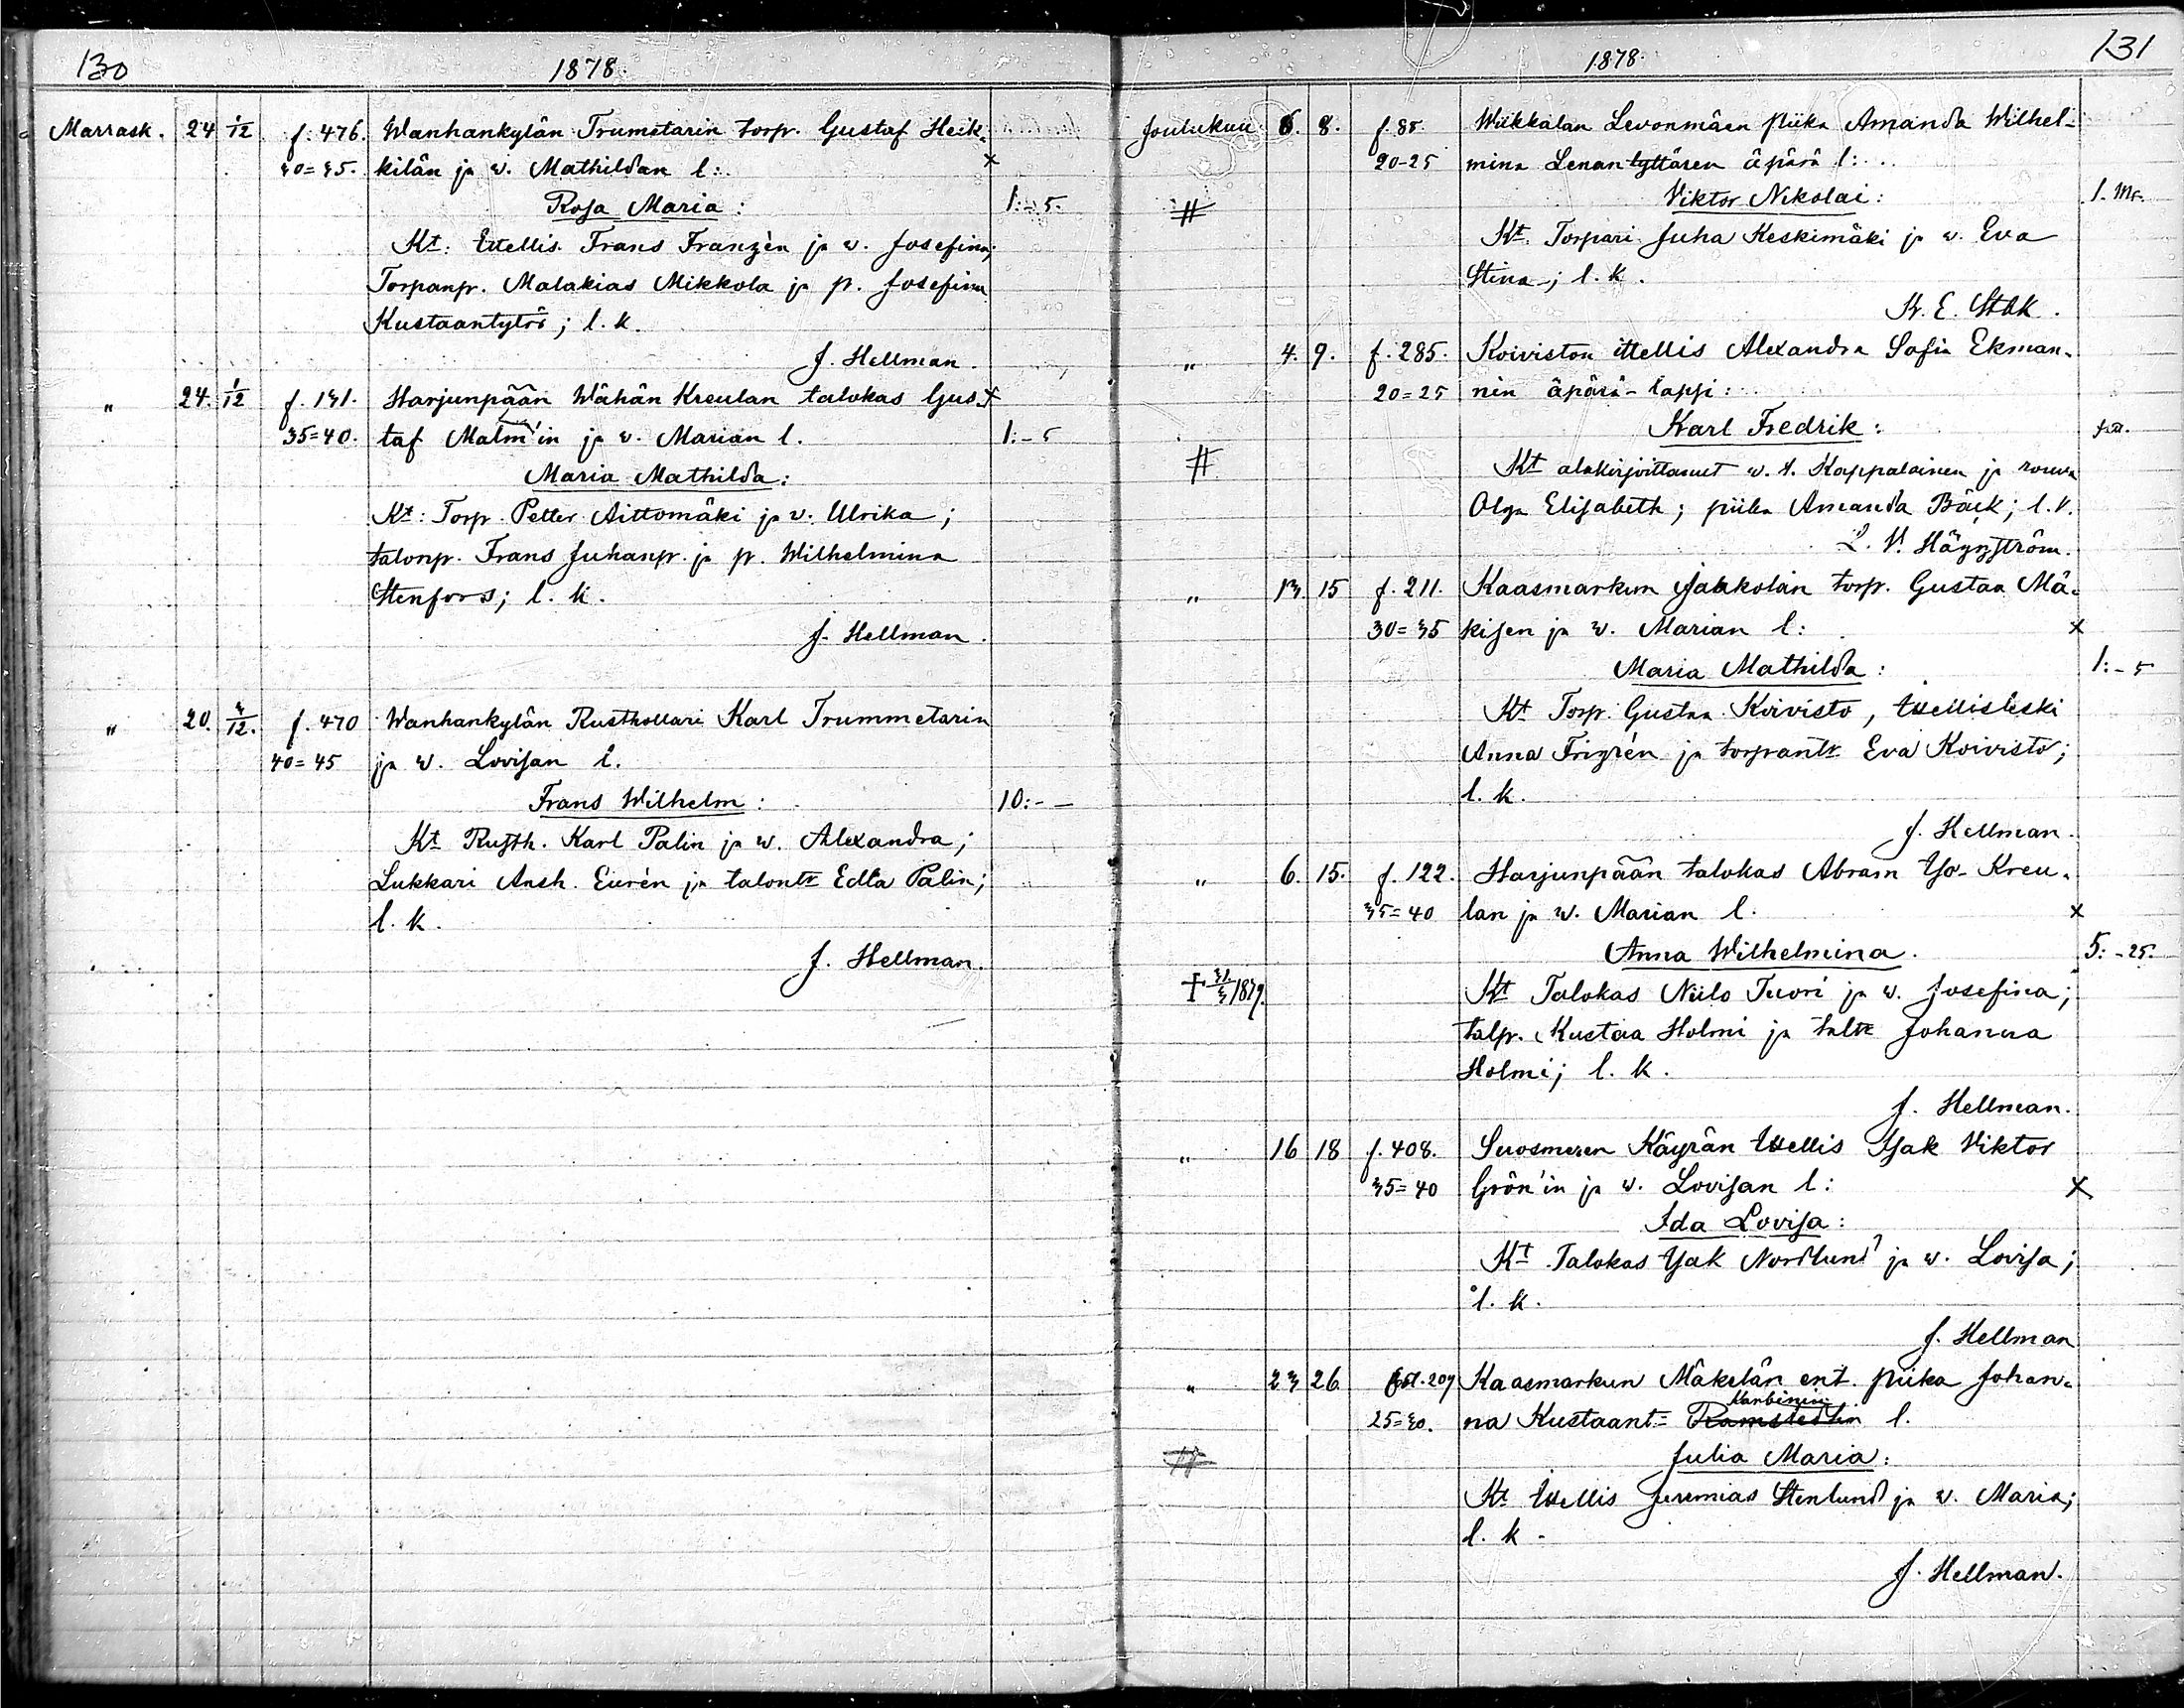 130
1878.
Marrask. 24 1/12 f. 476. Wanhankylän Trumetarin torp. Gustaf Heik-
40=45. kilän ja w. Mathildan l:. x
Rosa Maria: 1:-5.
Kt: Ittellis. Frans Franzèn ja w. Josefina;
Torpanp. Malakias Mikkola ja p. Josefina
Kustaantytös; l. k.
J. Hellman.
" 24. 1/12 f. 131. Harjunpään Wähän Kreulan talokas Gus- x
35=40. taf Malm'in ja w. Marian l. 1:-5
Maria Mathilda:
Kt: Torp. Petter Aittomäki ja v. Ulrika;
talonp. Frans Juhanp. ja p. Wilhelmina
Stenfors; l. k.
J. Hellman.
" 20. 3/12. f. 470 Wanhankylän Rusthollari Karl Trummetarin
40=45 ja w. Lovisan l.
Frans Wilhelm: 10:--
Kt Rusth. Karl Palin ja w. Alexandra;
Lukkari Ansh. Eurén ja talontr Edla Palin;
l. k.
J. Hellman.
131
1878.
Joulukuu 6. 8. f. 85. Wiikkalan Levonmäen piika Amanda Wilhel-
20-25 mina Lenantyttären äpärä l:
Viktor Nikolai: 1. Mr.
#
Kt. Torpari Juha Keskimäki ja w. Eva
Stina; l. k.
K. E. Stbk.
" 4. 9. f. 285. Koiviston ittellis Alexandra Sofia Ekman-
20=25 nin äpärä-lapsi:
Karl Fredrik:
#
Kt alakirjoittanut w. t. Kappalainen ja rouva
Olga Elisabeth; piika Amanda Bäck; l. k.
L. V. Häggström.
" 13. 15 f. 211. Kaasmarkun Jaakkolan torp. Gustaa Mä-
30=35 kisen ja w. Marian l: x
Maria Mathilda: 1:-5
Kt Torp. Gustaa Koivisto, Ittellisleski
Anna Frigrén ja torpantr Eva Koivisto;
l. k.
J. Hellman.
" 6. 15. f. 122. Harjunpään talokas Abram Yso-Kreu-
35=40 lan ja w. Marian l. x
Anna Wilhelmina. 5:-25.
† 31/3 1879. Kt Talokas Niilo Tuori ja w. Josefina;
talp. Kustaa Holmi ja taltr Johanna
Holmi; l. k.
J. Hellman.
" 16 18 f. 408. Suosmeren Käyrän Ittellis Isak Viktor
35=40 Grön'in ja w. Lovisan l: x
Ida Lovisa:
Kt Talokas Isak Nordlund ja w. Lovisa;
l. k.
J. Hellman
" 23 26 fol. 207 Kaasmarkun Mäkelän ent. piika Johan-
25=30. na Kustaant= Ramstedtin l.
Julia Maria:
#
Kt Ittellis Jeremias Stenlund ja w. Maria;
l. k.
J. Hellman.